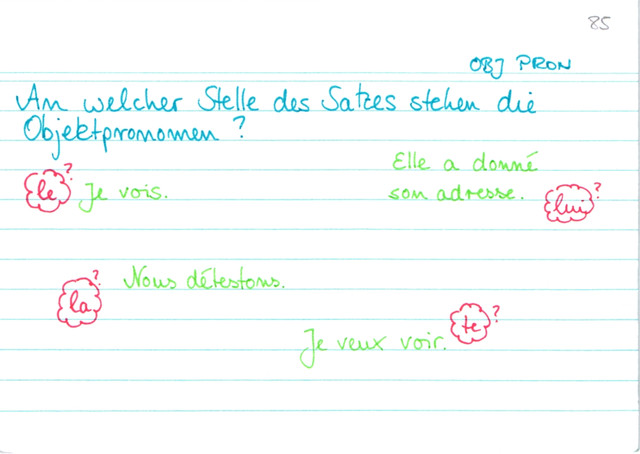 85
OBJ PRON
An welcher Stelle des Satzes stehen die
Objektpronomen ?
le ? Je vois.
Elle a donné
son adresse. lui ?
Nous détestons.
la ?
Je veux voir. te ?